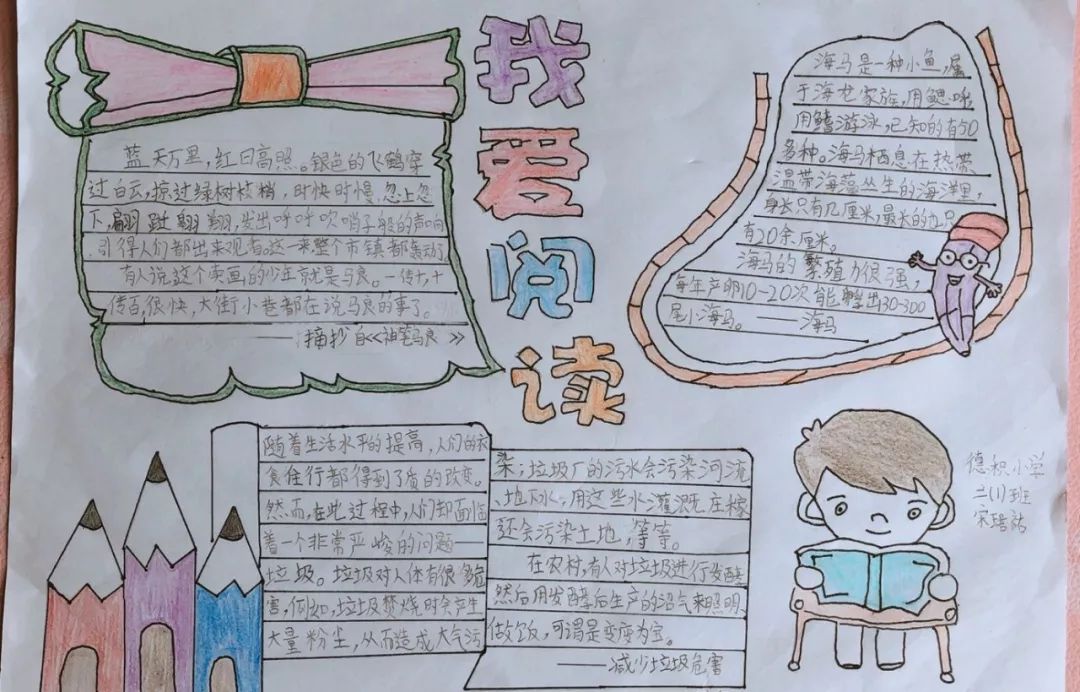 我爱阅读
蓝天万里，红日高照。银色的飞鹤穿
过白云，掠过绿树枝梢，时快时慢，忽上忽
下，翩跹翱翔，发出呼呼吹哨子般的声响，
引得人们都出来观看。这一来整个市镇都轰动了。
有人说这个卖画的少年就是马良。一传十，十
传百，很快，大街小巷都在说马良的事了。
——摘抄自《神笔马良》
海马是一种小鱼，属
于海龙家族，用鳃呼
用鳍游泳，已知的有50
多种。海马栖息在热带、
温带海藻丛生的海洋里，
身长只有几厘米，最长的也只
有20余厘米。
海马的繁殖力很强，
每年产卵10-20次能孵出30-300
尾小海马。——海马
随着生活水平的提高，人们的衣
食住行都得到了质的改变。
然而，在此过程中，人们却面临
着一个非常严峻的问题——
垃圾。垃圾对人体有很多危
害，例如，垃圾焚烧时会产生
大量粉尘，从而造成大气污
染；垃圾厂的污水会污染河流
、地下水，用这些水灌溉庄稼
还会污染土地，等等。
在农村，有人对垃圾进行发酵
然后用发酵后生产的沼气来照明、
做饭，可谓是变废为宝。
——减少垃圾危害
德积小学
三(1)班